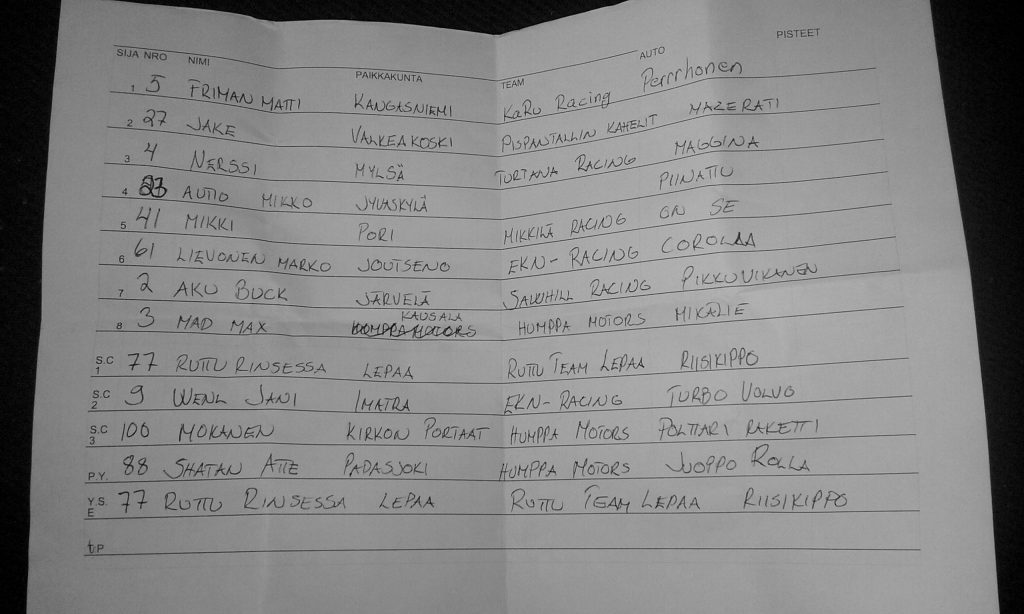 SIJA NRO NIMI PAIKKAKUNTA TEAM AUTO PISTEET
1 5 FRIMAN MATTI KANGASNIEMI KaRu Racing Perrrhonen
2 27 JAKE VALKEAKOSKI PISPANTALLIN KAHELIT MAZERATI
3 4 NERSSI MYLSÄ TURTANA RACING MAGGINA
4 AUTIO MIKKO JYVÄSKYLÄ PIINATTU
5 41 MIKKI PORI MIKKILÄ RACING ON SE
6 61 LIEVONEN MARKO JOUTSENO EKN-RACING COROLAA
7 2 AKU BUCK JÄRVELÄ SAVUHILL RACING PIKKUVIKANEN
8 3 MAD MAX KAUSALA HUMPPA MOTORS MIKÄLIE
S.C 1 77 RUTTU RINSESSA LEPAA RUTTU TEAM LEPAA RIISIKIPPO
S.C 2 9 WENL JANI IMATRA EKN-RACING TURBO VOLVO
S.C 3 100 MOKANEN KIRKON PORTAAT HUMPPA MOTORS POLTTARI RAKETTI
P.Y. 88 SHATAN ATTE PADASJOKI HUMPPA MOTORS JUOPPO ROLLA
Y.S. E 77 RUTTU RINSESSA LEPAA RUTTU TEAM LEPAA RIISIKIPPO
t.P